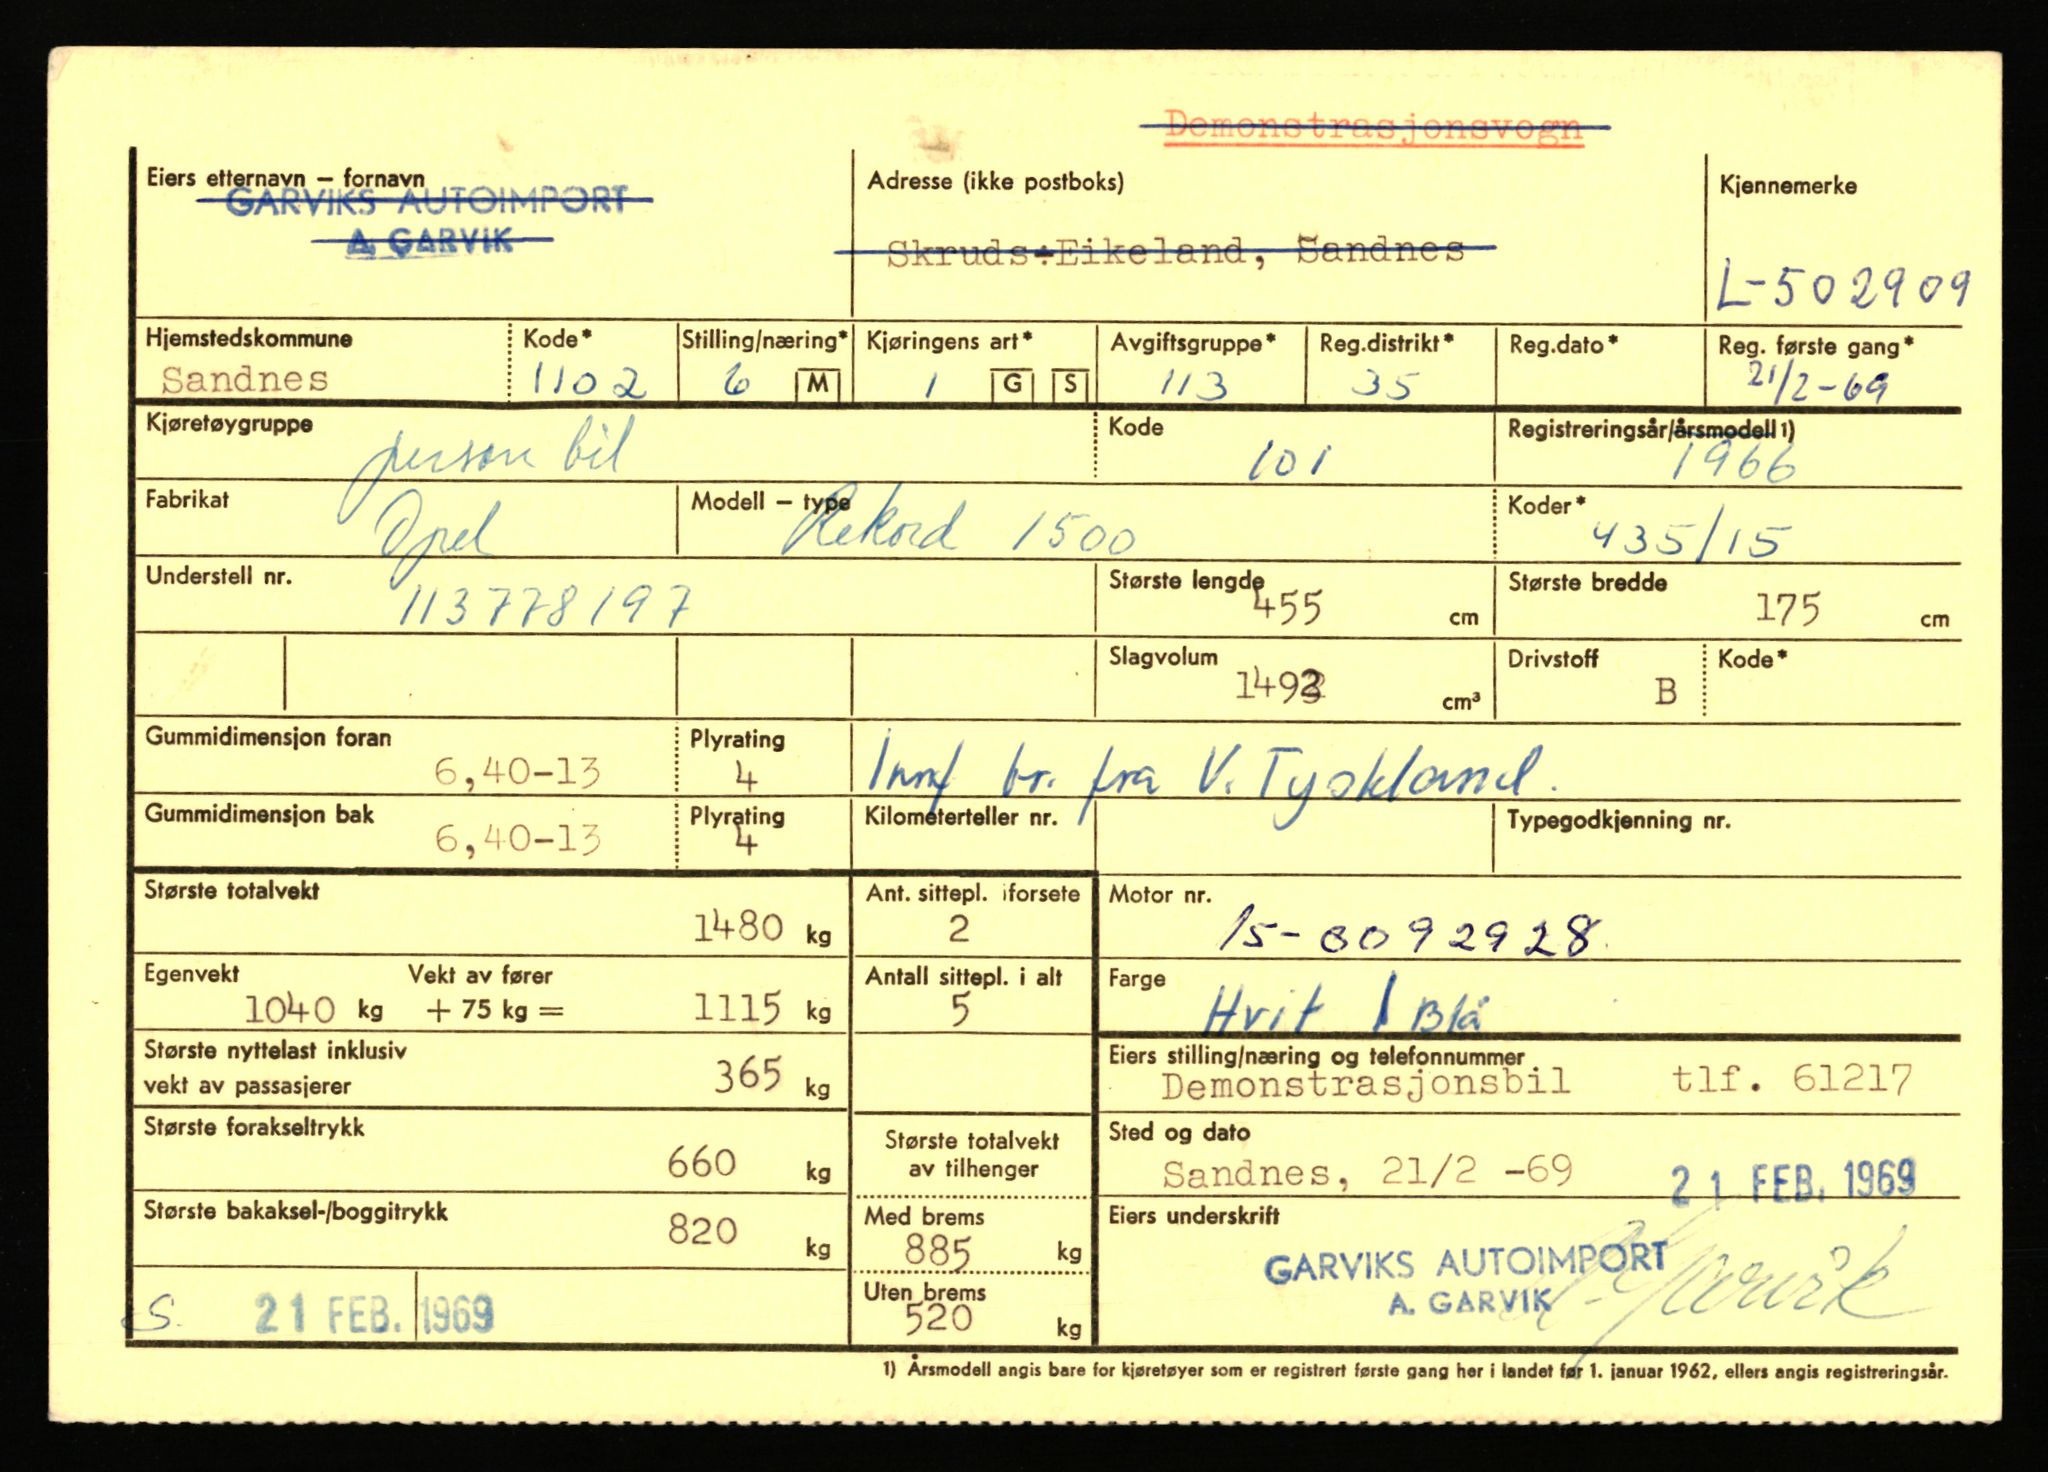 Demonstrasjonsvogn
Eiers etternavn – fornavn
GARVIKS AUTOIMPORT
A. GARVIK
Adresse (ikke postboks)
Skruds÷Eikeland, Sandnes
Kjennemerke
L-502909
Hjemstedskommune
Sandnes
Kode*
1102
Stilling/næring*
6 M
Kjøringens art*
1 G S
Avgiftsgruppe*
113
Reg.distrikt*
35
Reg.dato*
Reg. første gang*
21/2-69
Kjøretøygruppe
personbil
Kode
101
Registreringsår/årsmodell 1)
1966
Fabrikat
Opel
Modell – type
Rekord 1500
Koder*
435/15
Understell nr.
113778197
Største lengde
455 cm
Største bredde
175 cm
Slagvolum
1493 cm³
Drivstoff
B
Kode*
Gummidimensjon foran
6,40-13
Plyrating
4
Innf br. fra V. Tyskland.
Gummidimensjon bak
6,40-13
Plyrating
4
Kilometerteller nr.
Typegodkjenning nr.
Største totalvekt
1480 kg
Ant. sittepl. iforsete
2
Motor nr.
15-0092928
Egenvekt
1040 kg
Vekt av fører
+ 75 kg = 1115 kg
Antall sittepl. i alt
5
Farge
Hvit / Blå
Største nyttelast inklusiv
vekt av passasjerer
365 kg
Eiers stilling/næring og telefonnummer
Demonstrasjonsbil tlf. 61217
Største forakseltrykk
660 kg
Største totalvekt
av tilhenger
Sted og dato
Sandnes, 21/2 -69 21 FEB. 1969
Største bakaksel-/boggitrykk
820 kg
Med brems
885 kg
Uten brems
520 kg
Eiers underskrift
GARVIKS AUTOIMPORT
A. GARVIK
A. Garvik
S. 21 FEB. 1969
1) Årsmodell angis bare for kjøretøyer som er registrert første gang her i landet før 1. januar 1962, ellers angis registreringsår.